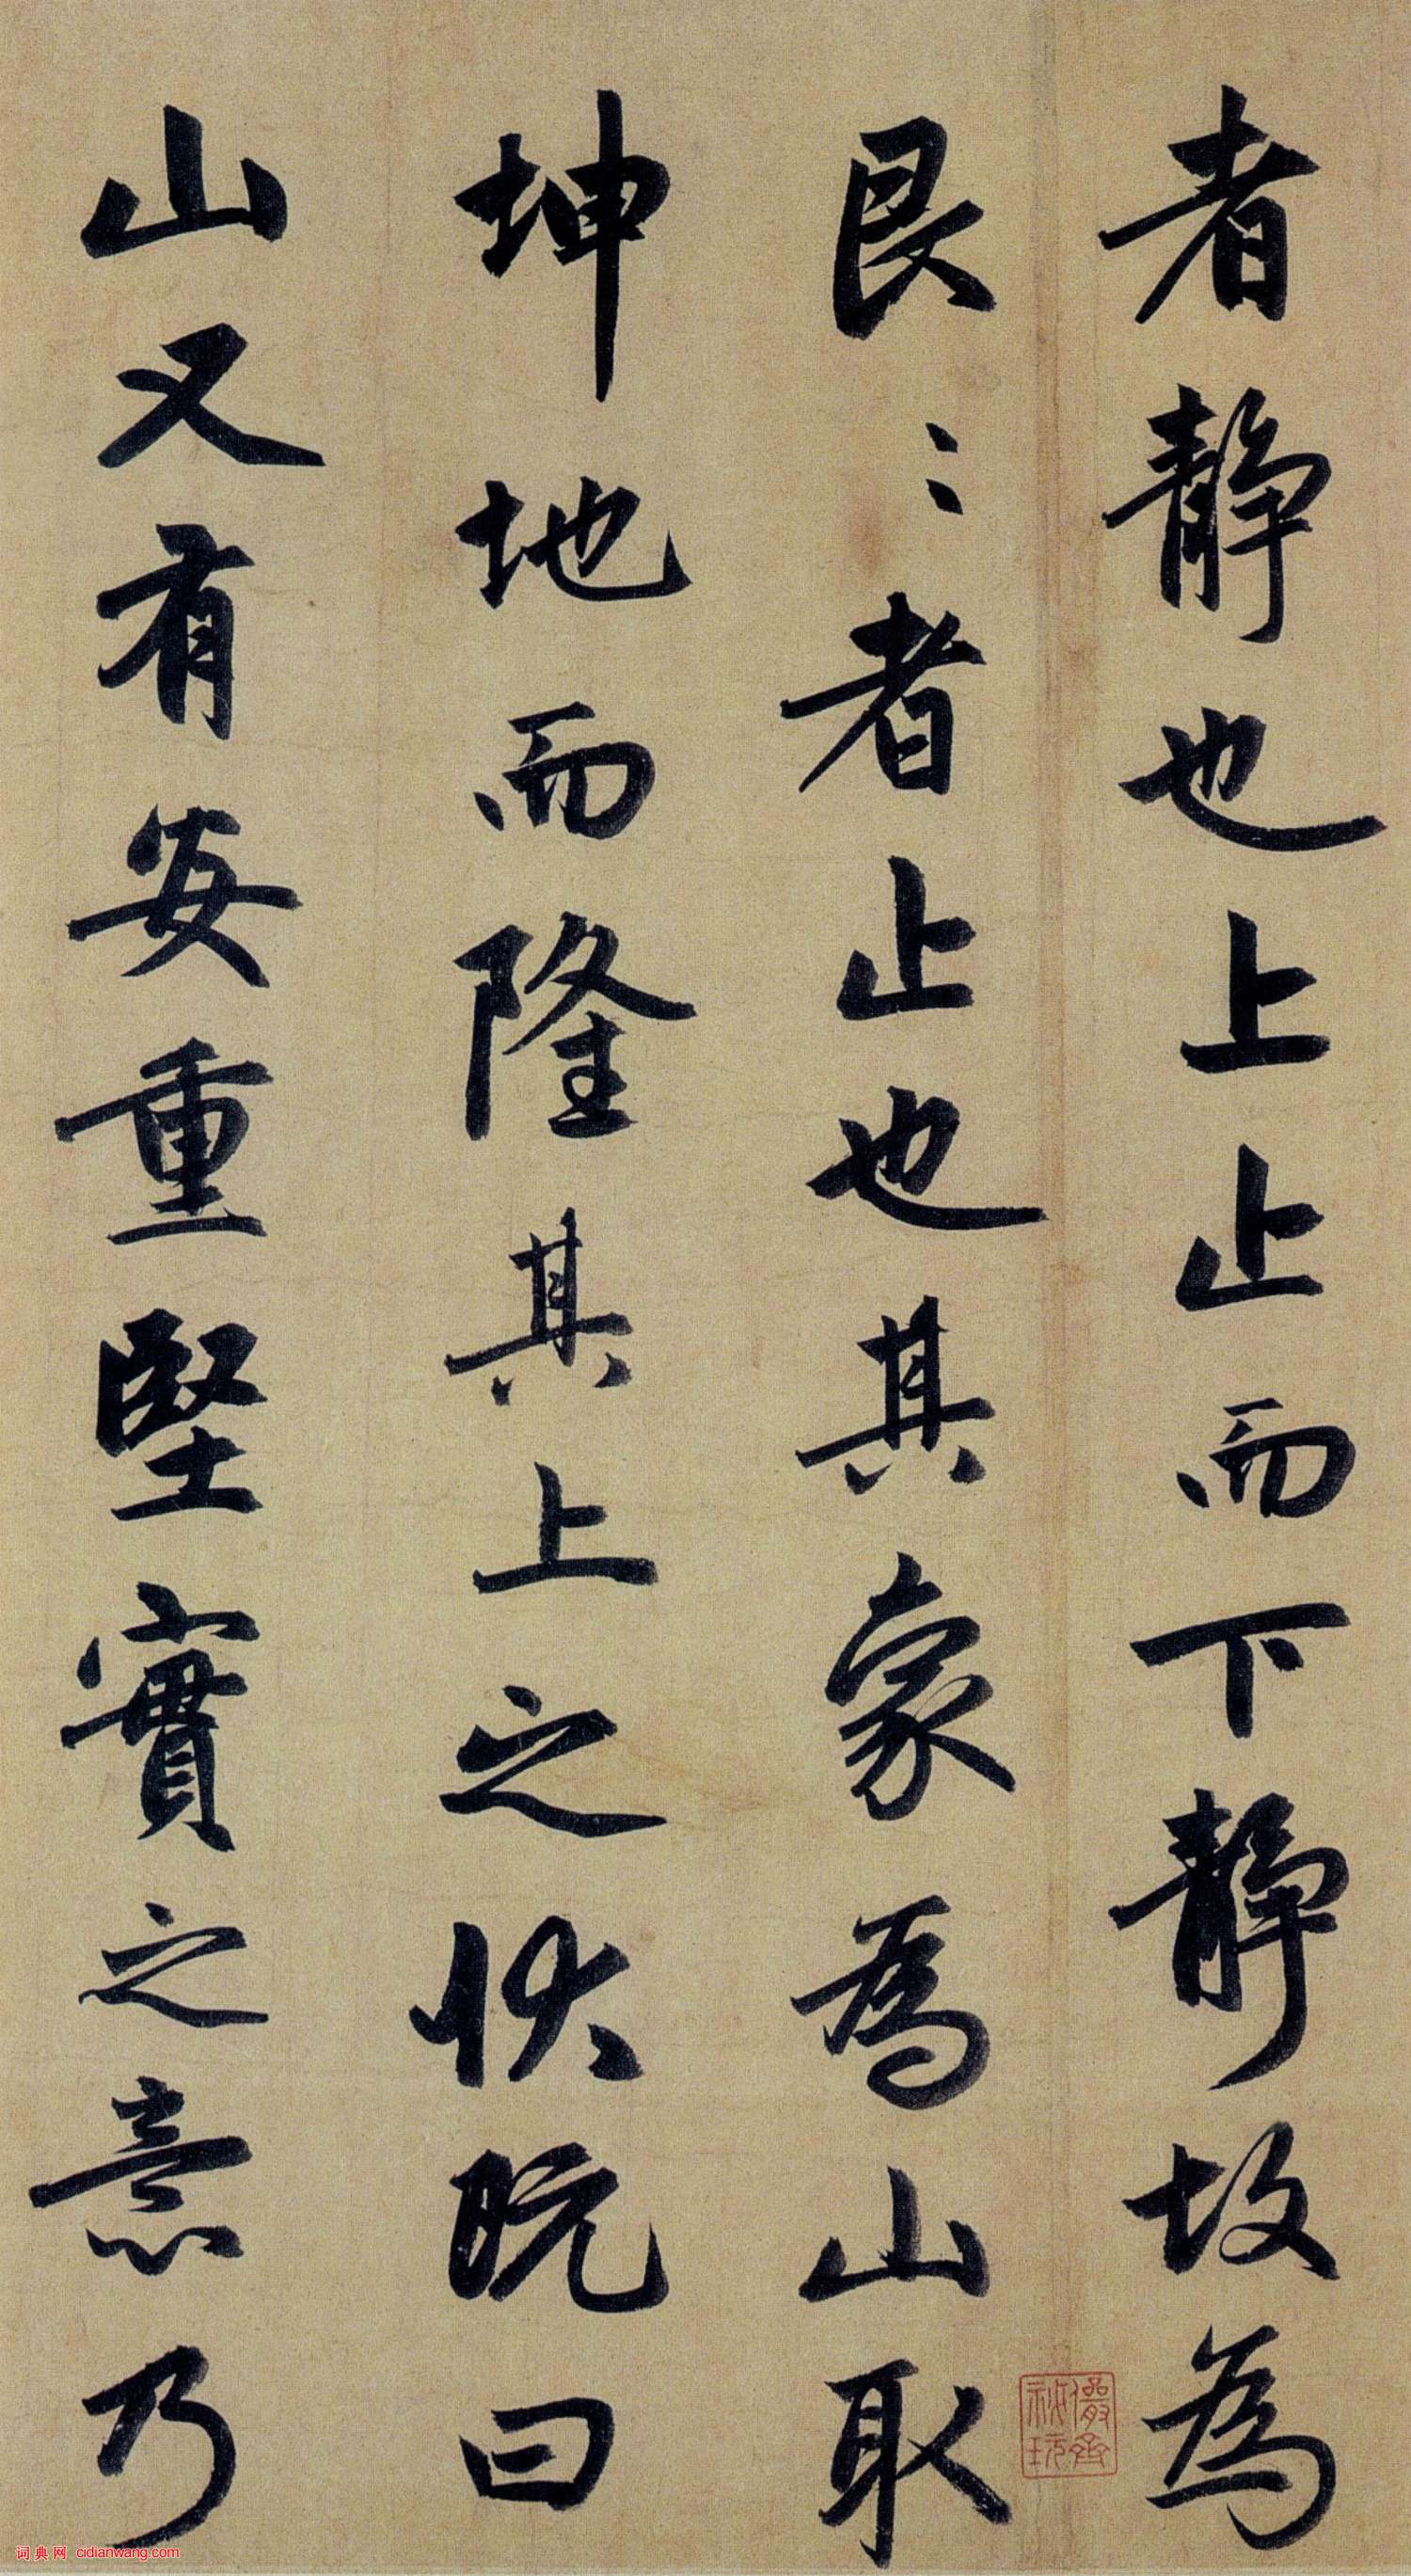 者静也上止而下静故为
艮〻者止也其象为山取
坤地而隆其上之状既曰
山又有安重坚实之意乃
儼斋秘玩
词典网 cidianwang.com